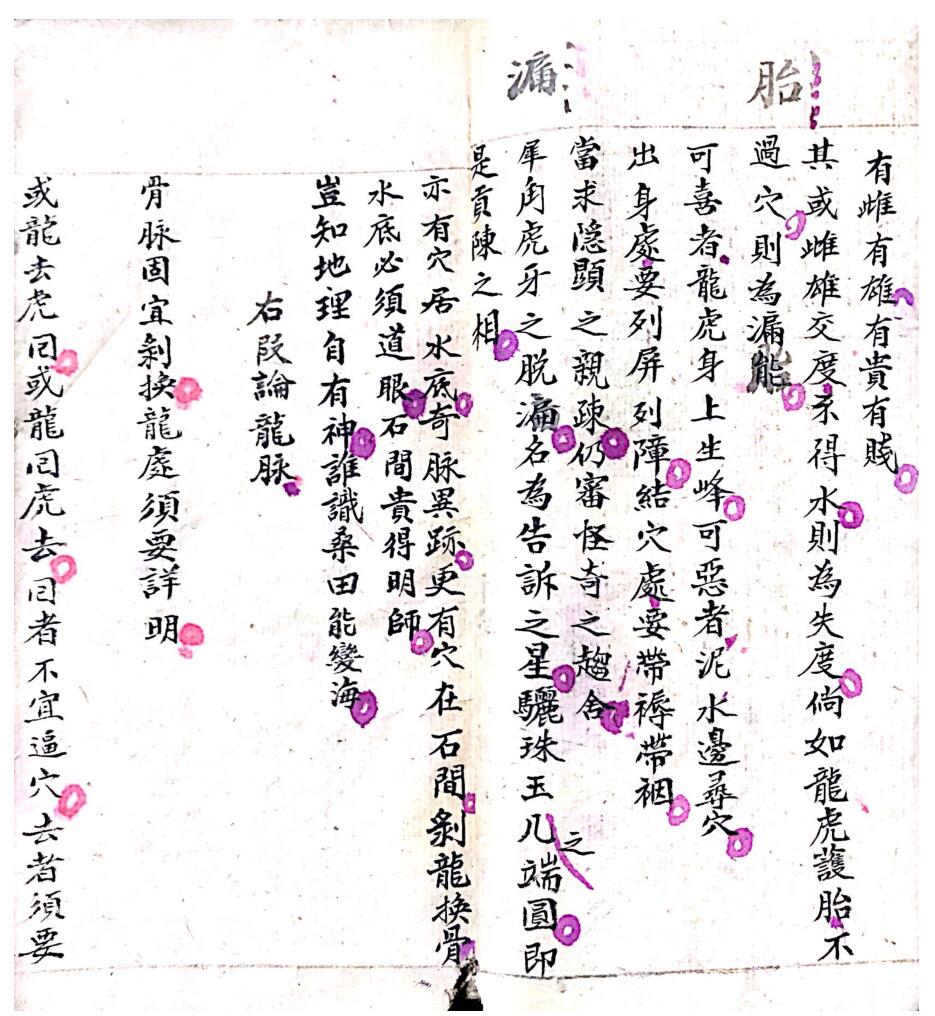 胎
漏
有雌有雄有貴有賤
其或雌雄交度不得水則為失度倘如龍虎護胎不
過穴則為漏能
可喜者龍虎身上生峰可惡者泥水邊尋穴
出身處要列屏列障結穴處要帶褥帶裀
當求隠顯之親疎仍審怪奇之趨舍
犀角虎牙之脱漏名為告訴之星驪珠玉几之端圓即
是貢陳之相
亦有穴居水底奇脉異跡更有穴在石間剝龍換骨
水底必須道眼石間貴得明師
豈知地理自有神誰識桑田能變海
右段論龍脉
骨脉固宜剝換龍處須要詳明
或龍去虎囘或龍囘虎去囘者不宜逼穴去者須要